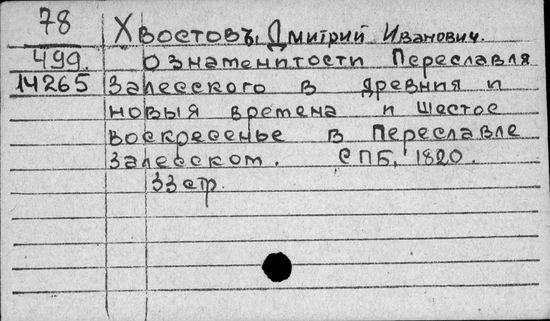 78
Хвостовъ, Дмитрий Иванович.
499. О знаменитости Переславля
14265 Залесского в древния и
новыя времена и шестое
воскресенье в Переславле
Залесском. СПБ, 1820.
33 стр.